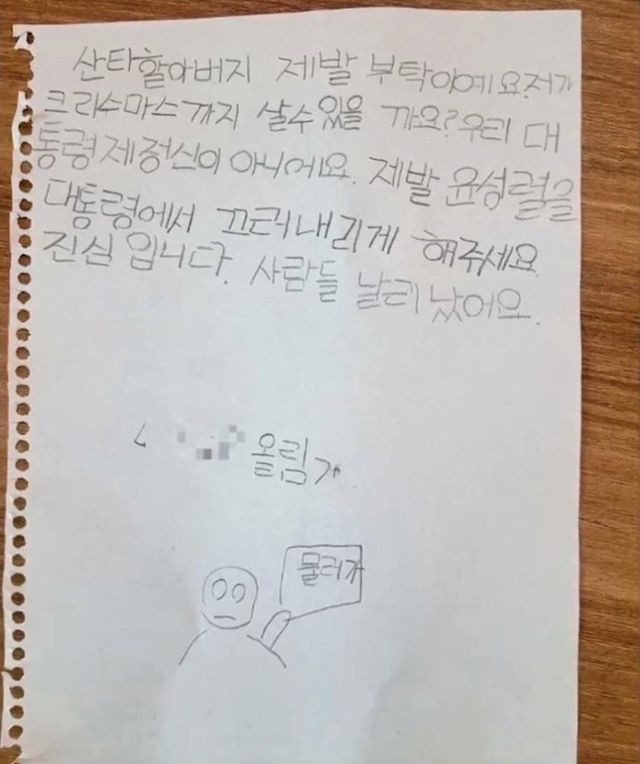 산타할아버지 제발 부탁이예요.저가
크리스마스까지 살수있을 까요?우리 대
통령제정신이 아니에요. 제발 윤성렬을
대통령에서 끄러내리게 해주세요
진심 입니다. 사람들 날리났어요.
올림
물러가